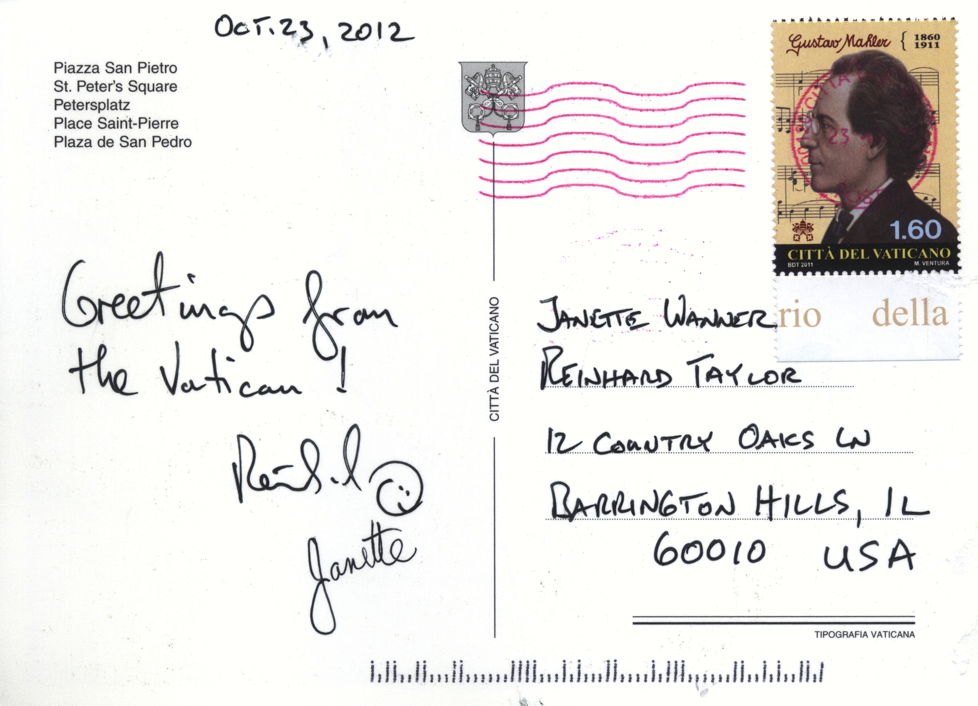 OCT. 23, 2012
Piazza San Pietro
St. Peter's Square
Petersplatz
Place Saint-Pierre
Plaza de San Pedro
Gustav Mahler { 1860
1911
1.60
CITTÀ DEL VATICANO
BDT 2011 M. VENTURA
rio della
Greetings from
the Vatican !
Janette
CITTÀ DEL VATICANO
JANETTE WANNER
REINHARD TAYLOR
12 COUNTRY OAKS LN
BARRINGTON HILLS, IL
60010 USA
TIPOGRAFIA VATICANA